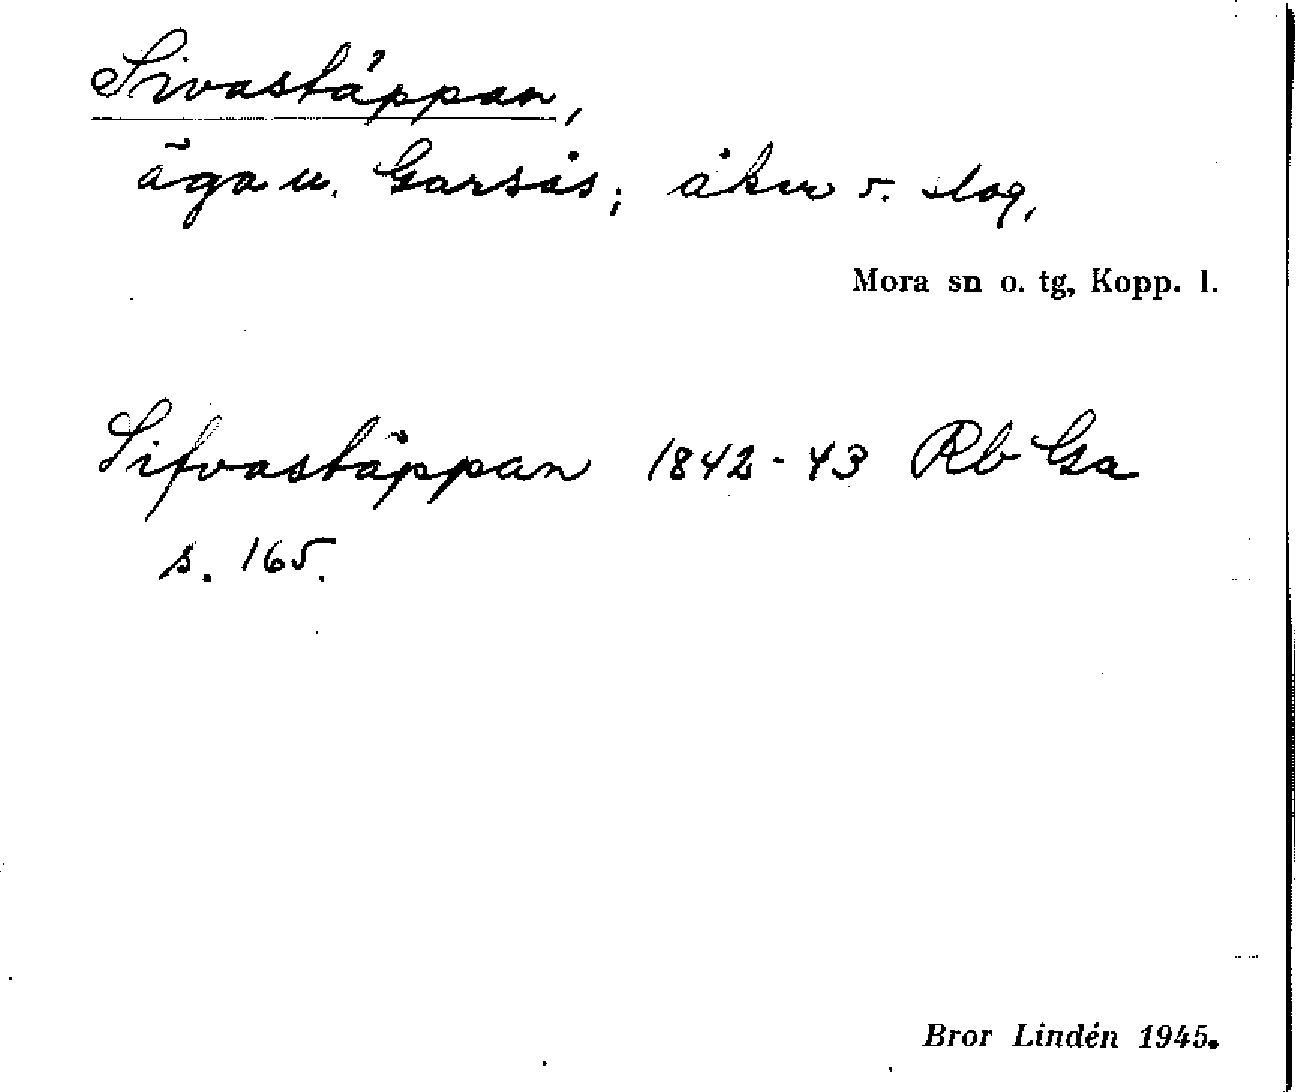 Sivastäppan,
äga u. Garsås; åker o. slog,
Mora sn o. tg, Kopp. l.
Sifvastäppan 1842-43 Rb Ga
s. 165.
Bror Lindén 1945.